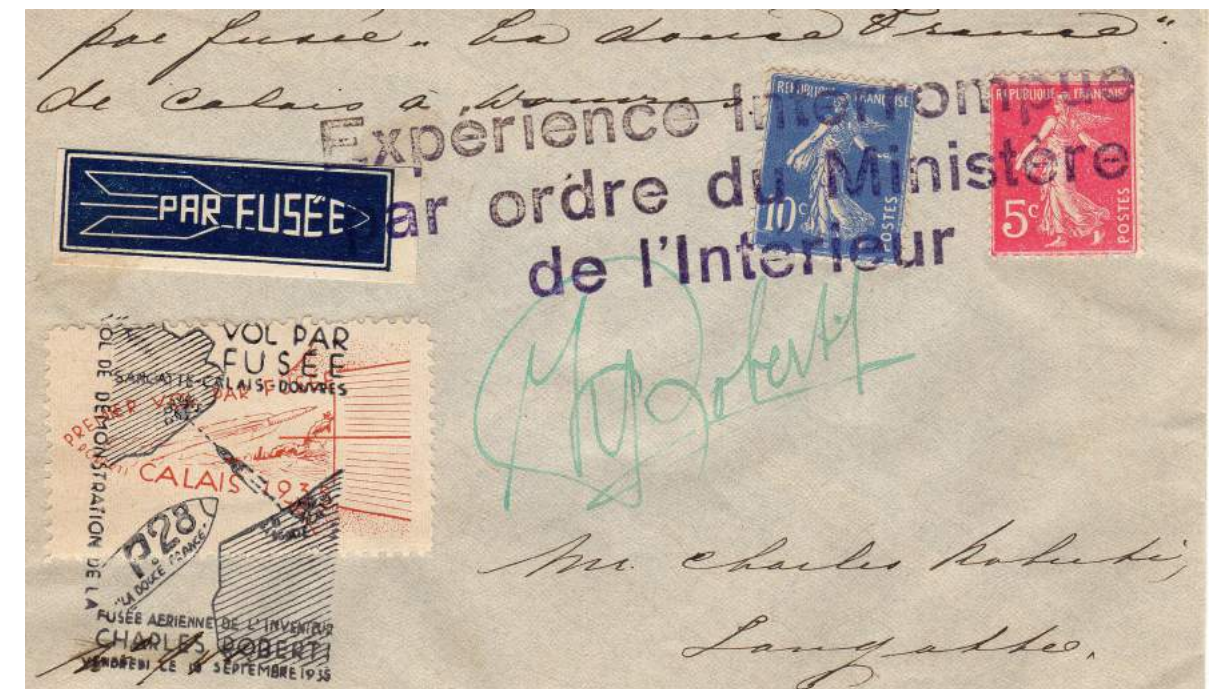 par fusée „La douce France"
de Calais à Douvres
Expérience Interrompue
par ordre du Ministère
de l'Intérieur
REPUBLIQUE FRANÇAISE
10c
POSTES
REPUBLIQUE FRANÇAISE
5c
POSTES
PAR FUSÉE
VOL PAR
FUSÉE
SANGATTE-CALAIS-DOUVRES
PREMIER VOL PAR FUSÉE
CALAIS 1935
VOL DE DÉMONSTRATION DE LA
P.28
"LA DOUCE FRANCE"
FUSÉE AERIENNE DE L'INVENTEUR
CHARLES ROBERTI
VENDREDI LE SEPTEMBRE 1935
Roberti
Mr. Charles Roberti,
Sangatte.